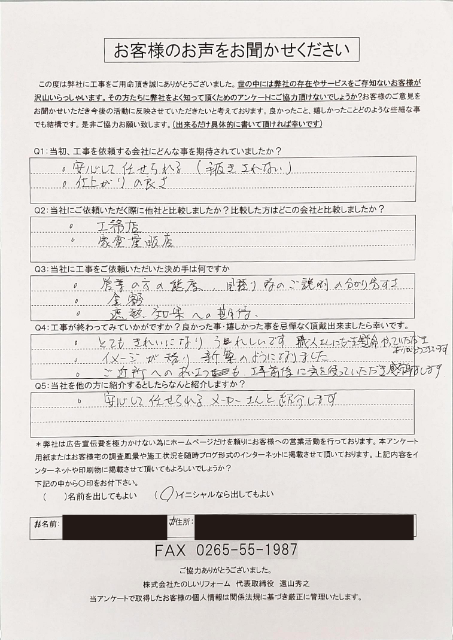 お客様のお声をお聞かせください
この度は弊社に工事をご用命頂き誠にありがとうございました。世の中には弊社の存在やサービスをご存知ないお客様が
沢山いらっしゃいます。その方たちに弊社をよく知って頂くためのアンケートにご協力頂けないでしょうか?お客様のご意見を
お聞かせいただき今後の活動に反映させていただきたいと考えております。良かったこと、嬉しかったことどのような些細な事
でも結構です。是非ご協力お願い致します。(出来るだけ具体的に書いて頂ければ幸いです)
Q1:当初、工事を依頼する会社にどんな事を期待されていましたか?
。安心して任せられる(手抜きされない)
。仕上がりの良さ
Q2:当社にご依頼いただく際に他社と比較しましたか?比較した方はどこの会社と比較しましたか?
。工務店
。家電量販店
Q3:当社に工事をご依頼いただいた決め手は何ですか
。営業の方の態度、見積り時のご説明の分かり易さ
。金額
。遮熱効果への期待
Q4:工事が終わってみていかがですか?良かった事・嬉しかった事を忌憚なく頂戴出来ましたら幸いです。
。とてもきれいになりうれしいです
。イメージ通り新築のようになりました
。ご近所への 工事前後に気を使っていただき感謝します
Q5:当社を他の方に紹介するとしたらなんと紹介しますか?
安心して任せられるメーカーさんと紹介します
*弊社は広告宣伝費を極力かけない為にホームページだけを頼りにお客様への営業活動を行っております。本アンケート
用紙またはお客様宅の調査風景や施工状況を随時ブログ形式のインターネットに掲載させて頂いております。上記内容をイ
ンターネットや印刷物に掲載させて頂いてもよろしいでしょうか?
下記の中から〇印をお付下さい。
( )名前を出してもよい (〇)イニシャルなら出してもよい
お名前: ご住所:
FAX 0265-55-1987
ご協力ありがとうございました。
株式会社たのしいリフォーム 代表取締役 遠山秀之
当アンケートで取得したお客様の個人情報は関係法規に基づき厳正に管理いたします。